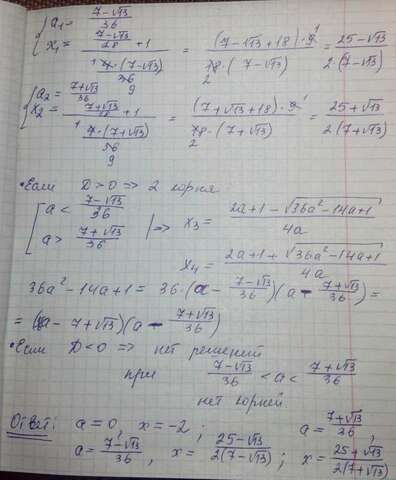 { a₁ = (7-√13)/36
x₁ = ((7-√13)/18 + 1)/(4·(7-√13)/36) = ((7-√13+18)·9)/(18·(7-√13)) = (25-√13)/(2(7-√13))
{ a₂ = (7+√13)/36
x₂ = ((7+√13)/18 + 1)/(4·(7+√13)/36) = ((7+√13+18)·9)/(18·(7+√13)) = (25+√13)/(2(7+√13))
• Если D>0 => 2 корня:
[ a < (7-√13)/36
a > (7+√13)/36 | => x₃ = (2a+1-√(36a²-14a+1))/(4a)
x₄ = (2a+1+√(36a²-14a+1))/(4a)
36a²-14a+1 = 36·(a - (7-√13)/36)(a - (7+√13)/36) =
= (36a - 7+√13)(a - (7+√13)/36)
• Если D<0 => нет решений
при (7-√13)/36 < a < (7+√13)/36
нет корней
Ответ: a=0, x=-2; a = (7+√13)/36,
a = (7-√13)/36, x = (25-√13)/(2(7-√13)); x = (25+√13)/(2(7+√13))